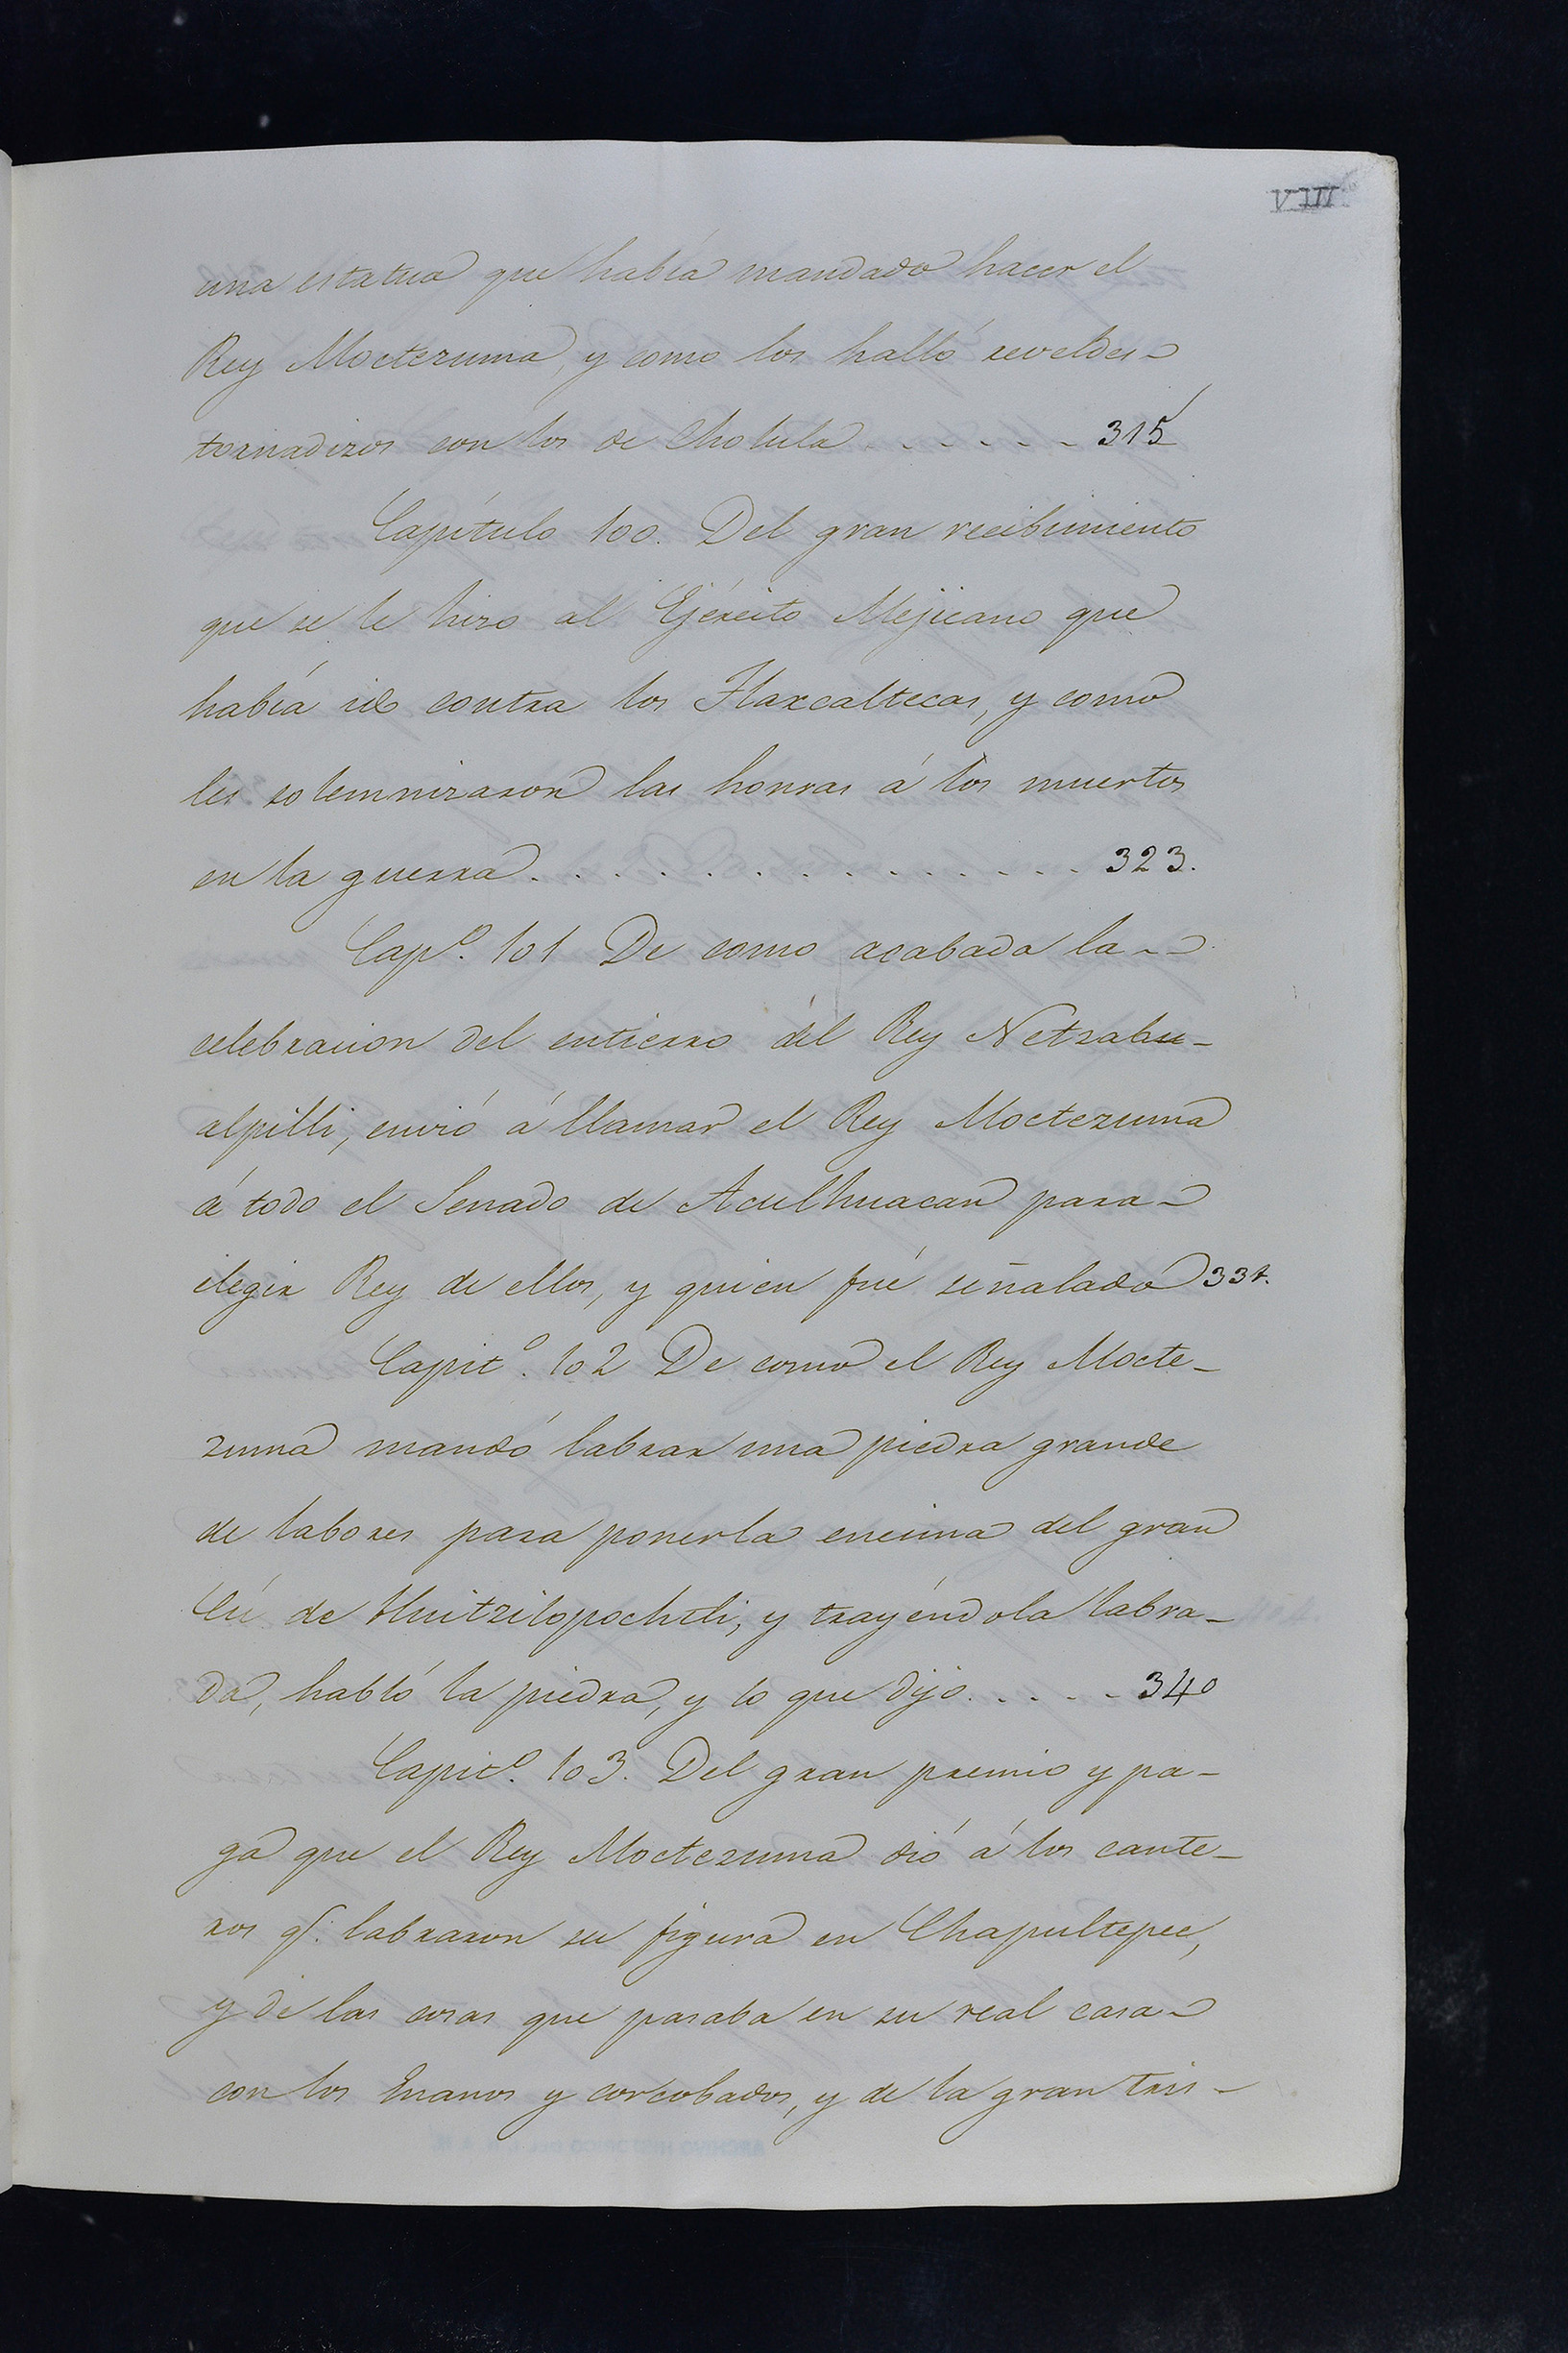 VIII
una estatua que había mandado hacer el
Rey Moctezuma, y como los halló reveldes
tornadizos con los de Cholula . . . . . . 315
Capítulo 100. Del gran recibimiento
que se le hizo al Ejército Mejicano que
había ido contra los Tlaxcaltecas, y como
les solemnizaron las honras á los muertos
en la guerra . . . . . . . . . . . 323.
Cap.º 101 De como acabada la
celebracion del entierro del Rey Netzahu-
alpilli, envió á llamar el Rey Moctezuma
á todo el Senado de Aculhuacan para
elegir Rey de ellos, y quien fué señalado 331.
Capit.º 102 De como el Rey Mocte-
zuma mandó labrar una piedra grande
de labores para ponerla encima del gran
Cú de Huitzilopochtli, y trayéndola labra-
da, habló la piedra, y lo que dijo . . . . . 340
Capit.º 103. Del gran premio y pa-
ga que el Rey Moctezuma dió á los cante-
ros q.e labraron su figura en Chapultepec,
y de las cosas que pasaba en su real casa
con los Enanos y corcobados, y de la gran tris-